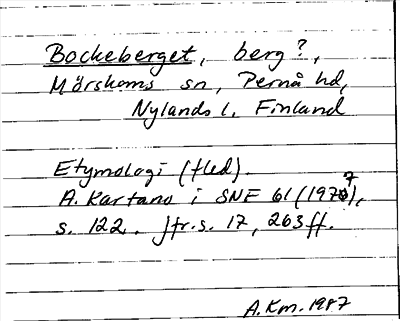 Bockeberget, berg?,
Mörskoms sn, Pernå hd,
Nylands l. Finland
Etymologi (fled).
A. Kartano i SNF 61 (1977),
s. 122. jfr. s. 17, 263 ff.
A.Km. 1987